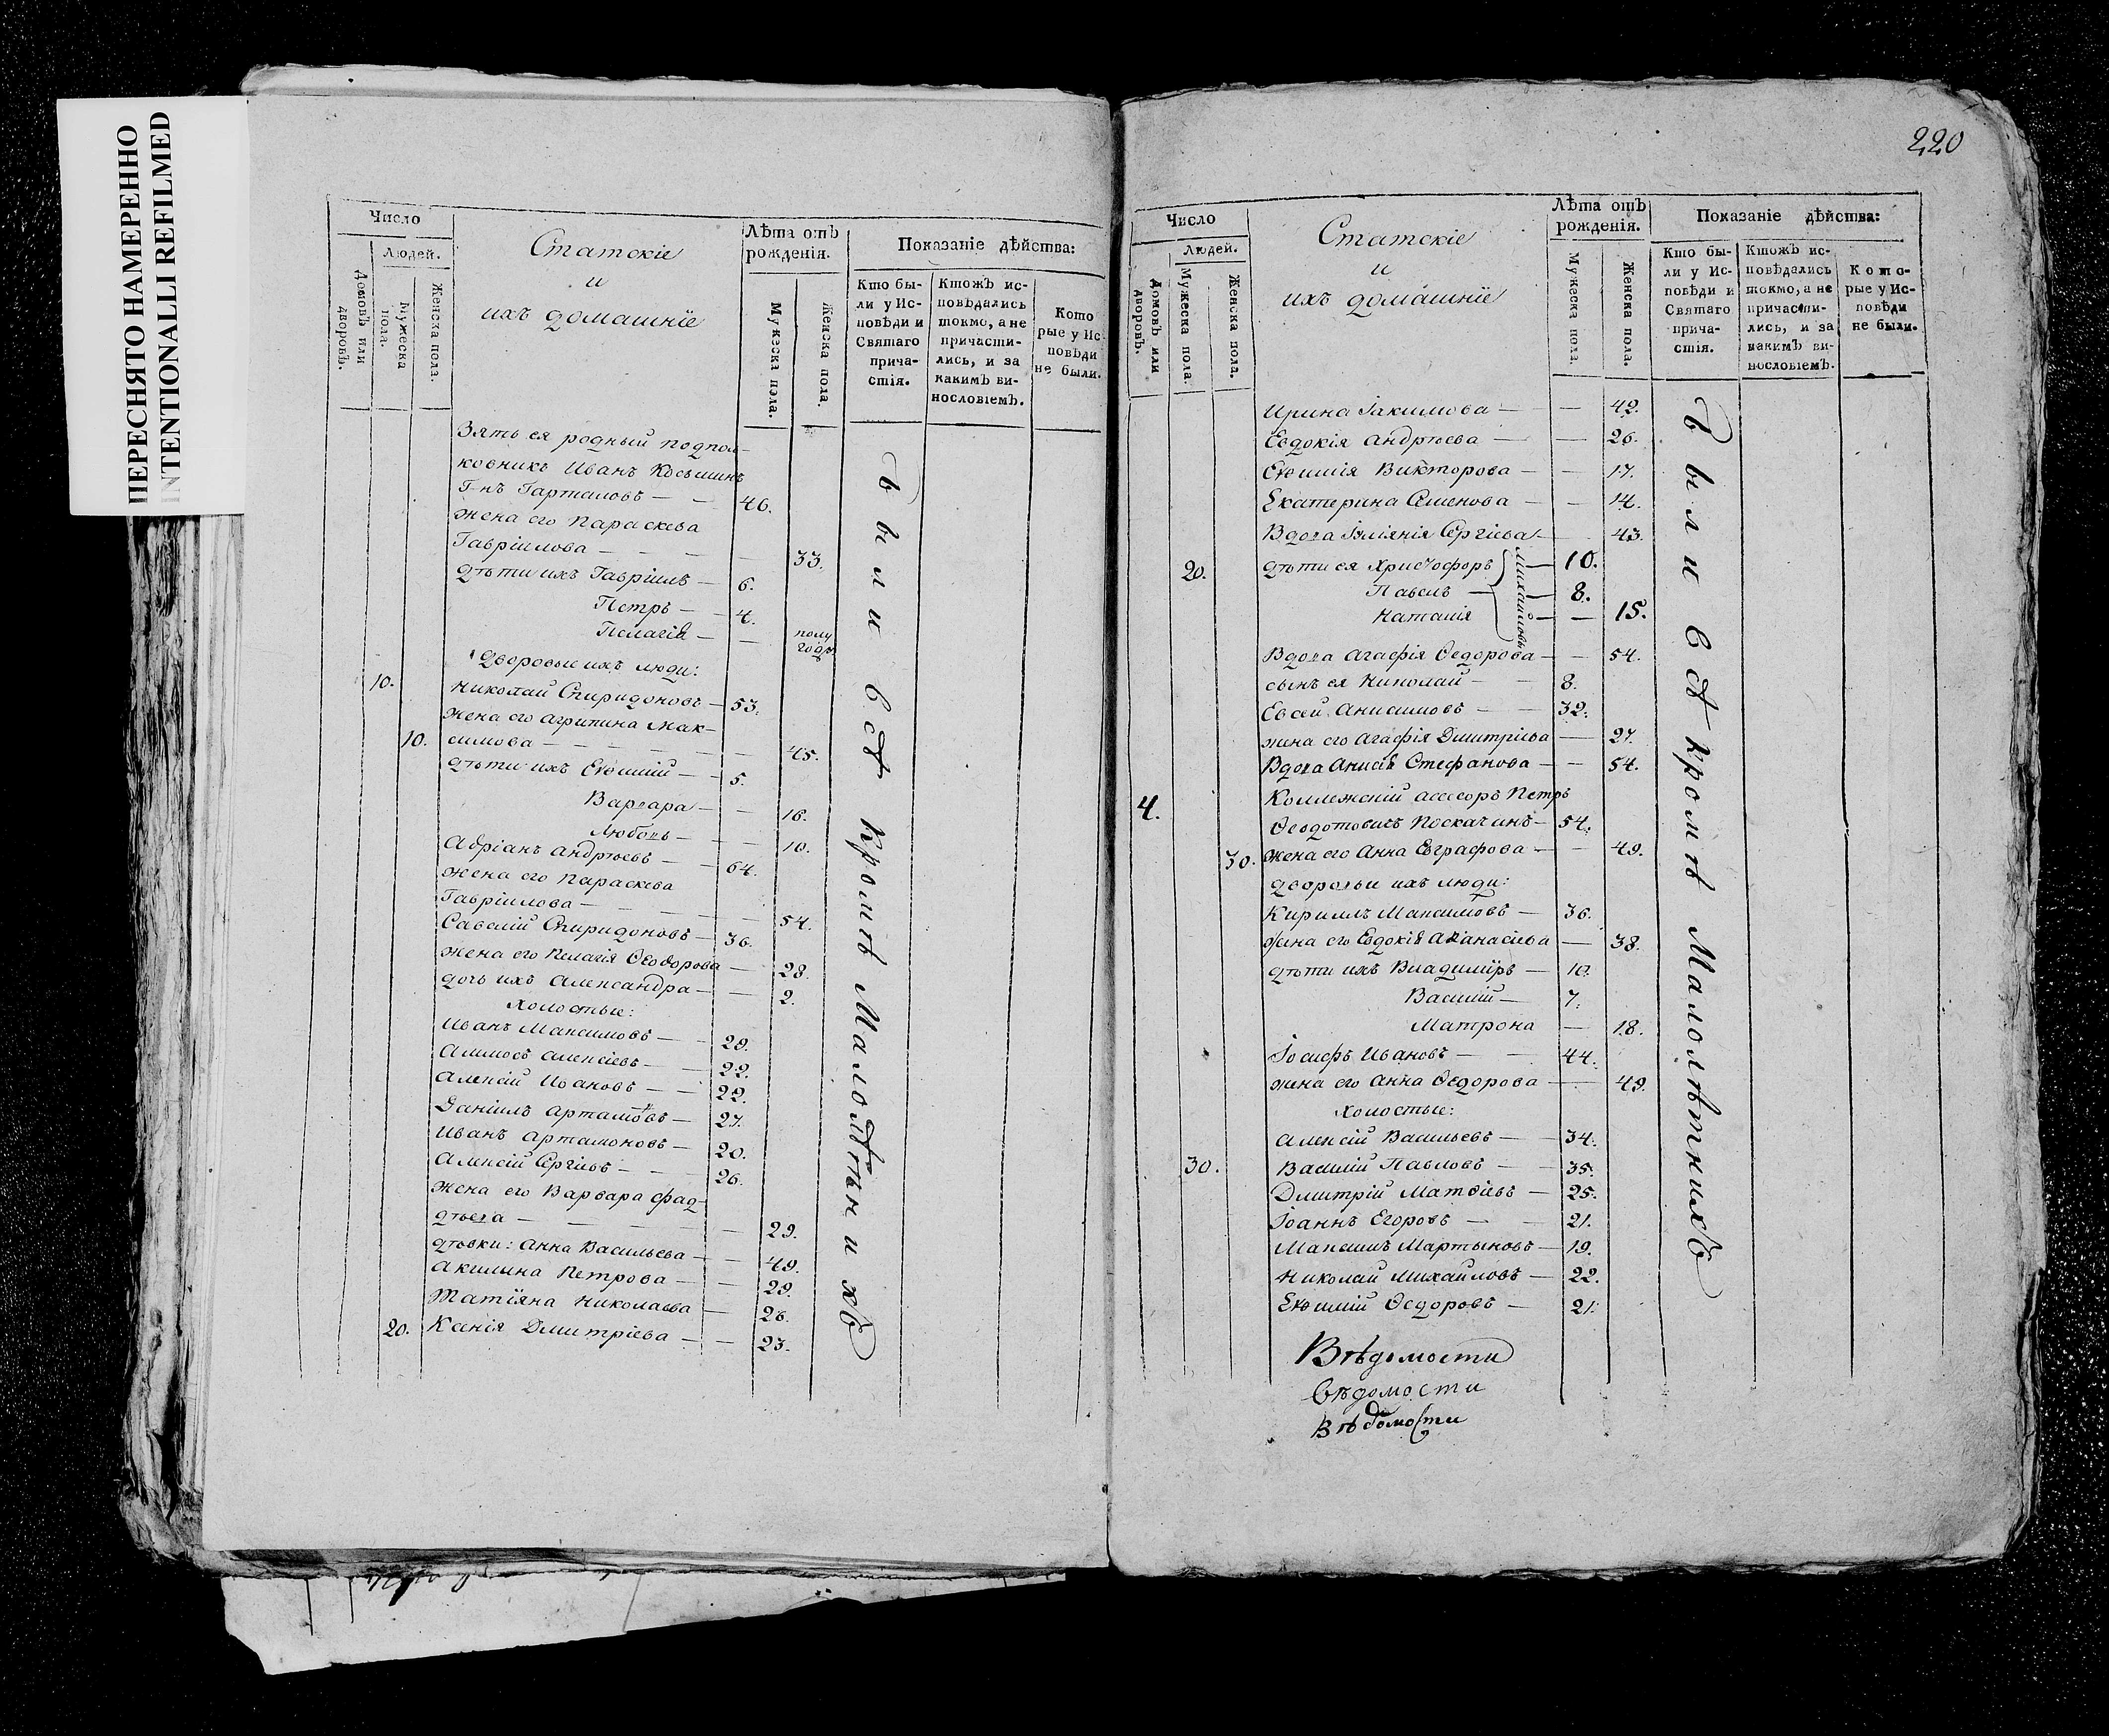 ПЕРЕСНЯТО НАМЕРЕННО
INTENTIONALLI REFILMED
Число
Людей.
Домовъ или дворовъ.
Мужеска пола.
Женска пола.
Статскіе
и
ихъ домашніе
Лѣта отъ
рожденія.
Мужеска пола.
Женска пола.
Показаніе дѣйства:
Кто бы-
ли у Ис-
повѣди и
Святаго
прича-
стія.
Ктожъ ис-
повѣдались
токмо, а не
причасти-
лись, и за
какимъ ви-
нословіемъ.
Кото
рые у Ис
повѣди
не были.
Зять ея родный подпол-
ковникъ Иванъ Косьминъ
Г-нъ Гарталовъ — — 46.
жена его Параскева
Гавріилова — — — — 33.
дѣти ихъ Гавріилъ — 6.
Петръ — — 4.
Пелагія — — полу
года
дворовые ихъ люди:
10. Николай Спиридоновъ — 53.
жена его Агрипина Мак-
10. симова — — — — — 45.
дѣти ихъ Евѳимій — — 5.
Варвара — — 16.
Любовь — — 10.
Адріанъ Андреевъ — — 64.
жена его Параскева
Гавріилова — — — — 54.
Савелій Спиридоновъ — 36.
жена его Пелагія Ѳеодорова — 28.
дочь ихъ Александра — — 2.
холостые:
Иванъ Максимовъ — — 29.
Аммосъ Алексіевъ — — 22.
Алексій Ивановъ — — 22.
Даніилъ Артамовъ — 27.
Иванъ Артамоновъ — 20.
Алексій Сергіевъ — — — 26.
жена его Варвара Фад-
дѣева — — — — 29.
дѣвки: Анна Васильева — — 49.
Акилина Петрова — — 29.
Татіяна Николаева — 26.
20. Ксенія Дмитріева — — 23.
Были всѣ кромѣ Малолѣтнихъ
220
Число
Людей.
Домовъ или дворовъ.
Мужеска пола.
Женска пола.
Статскіе
и
ихъ домашніе
Лѣта отъ
рожденія.
Мужеска пола.
Женска пола.
Показаніе дѣйства:
Кто бы-
ли у Ис-
повѣди и
Святаго
прича-
стія.
Ктожъ ис-
повѣдались
токмо, а не
причасти-
лись, и за
какимъ ви-
нословіемъ.
Кото-
рые у Ис-
повѣди
не были.
Ирина Іакимова — — 42.
Евдокія Андреева — — 26.
Евѳимія Викторова — — 17.
Екатерина Семенова — — 14.
Вдова Іуліянія Сергіева — 43.
20. дѣти ея Христофоръ — 10.
Павелъ — 8.
Наталія — — 15.
Михайловы
Вдова Агафія Ѳедорова — — 54.
сынъ ея Николай — — 8.
Евсей Анисимовъ — — 32.
жена его Агафія Дмитріева — 27.
Вдова Анисія Стефанова — — 54.
4. Коллежскій ассесоръ Петръ
Ѳеодотовичь Поскачинъ — 54.
30. жена его Анна Евграфова — — 49.
дворовыи ихъ люди:
Кириллъ Максимовъ — 36.
жена его Евдокія Аѳанасіева — 38.
дѣти ихъ Владиміръ — 10.
Василій — 7.
Матрона — 18.
Іосифъ Ивановъ — — 44.
жена его Анна Ѳедорова — — 49.
холостые:
Алексій Васильевъ — — 34.
30. Василій Павловъ — — 35.
Дмитрій Матѳіевъ — 25.
Іоаннъ Егоровъ — — 21.
Максимъ Мартыновъ — 19.
Николай Михайловъ — 22.
Евѳимій Ѳедоровъ — 21.
Были всѣ кромѣ Малолѣтнихъ
Вѣдомости
вѣдомости
Вѣдомости